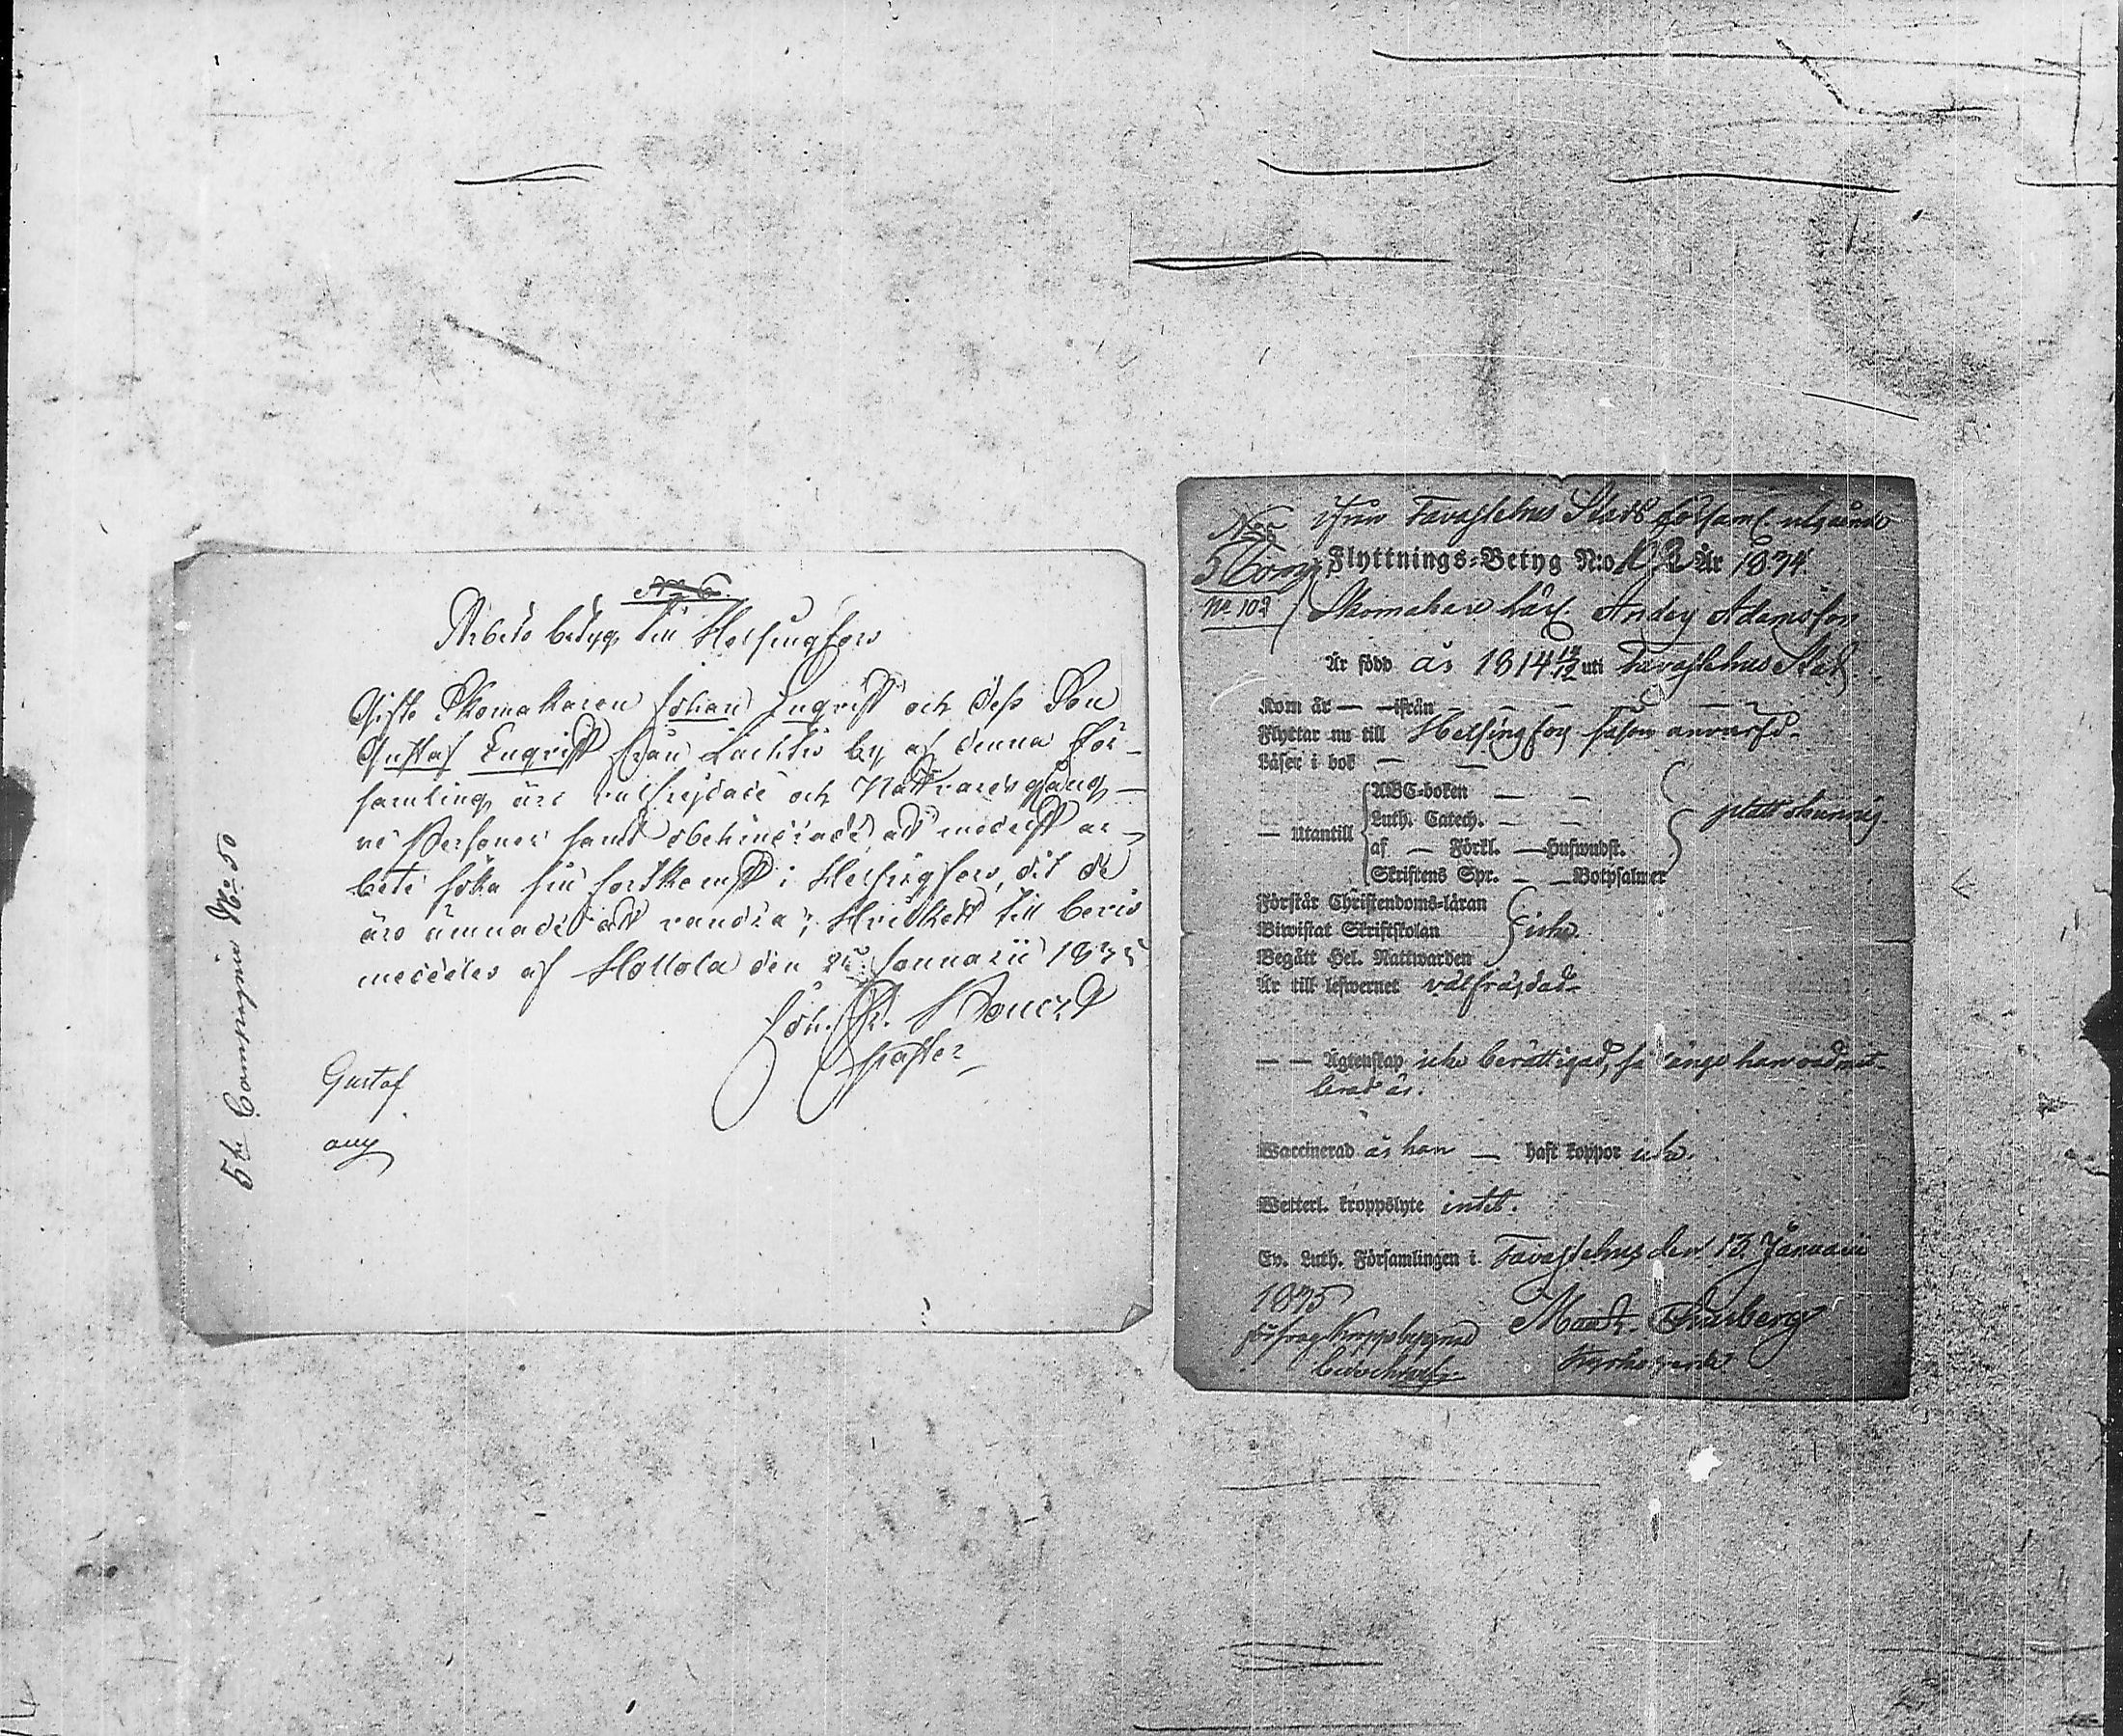 N:o 6.
Arbets betyg till Helsingfors
Gifte Skomakaren Johan Enqvist och dess Son
Gustaf Enqvist från Lachtis by af denna För-
samling äro välfrejdade och Nattvardsgång-
ne Personer samt obehindrade att medelst ar-
bete söka sin fortkomst i Helsingfors, dit de
äro ämnade att vandra; Hvilket till bevis
meddeles af Hollola den Januarii 1835
Joh. Fr.
Pastor
Gustaf
5te Compagnie No 50
ifrån Tavastehus Stads församl. utgående
No 55
5 Comp
No 102
Flyttnings-Betyg N:o 102 År 1834
Skomakare lärl. Anders Adamsson
Är född år 1814 12/12 uti Tavastehus Stad
Kom år — ifrån — —
Flyttar nu till Helsingfors såsom
Läser i bok — —
— Utantill
ABC-boken — —
Luth. Catech. — —
af — Förkl. — Huswudst.
Skriftens Spr. — — Botpsalmer
platt okunnig
Förstår Christendoms-läran
Biwistat Skriftskolan
Begått Hel. Nattwarden
icke.
Är till lefwernet välfräjdad
— — Ägtenskap icke berättigad, så länge han oadmit-
terad är.
Waccinerad är han — haft koppor icke.
Wetterl. kroppslyte intet.
Ev. Luth. Församlingen i Tavastehus den 13. Januarii
1835